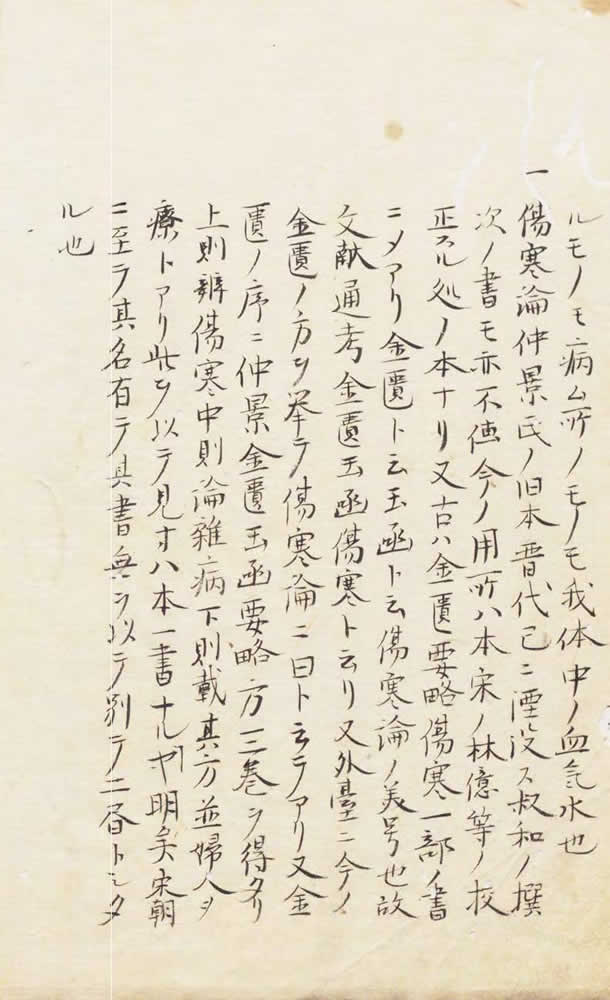 ルモノモ病ム所ノモノモ我体中ノ血氣水也
一傷寒論仲景氏ノ旧本晋代已ニ湮没ス叔和ノ撰
次ノ書モ亦不傳今ノ用所ハ本宋ノ林億等ノ校
正スル処ノ本ナリ又古ハ金匱要略傷寒一部ノ書
ニメアリ金匱ト云玉函ト云傷寒論ノ美号也故
文献通考金匱玉函傷寒ト云リ又外臺ニ今ノ
金匱ノ方ヲ挙テ傷寒論ニ曰ト云テアリ又金
匱ノ序ニ仲景金匱玉函要略方三巻ヲ得タリ
上則辨傷寒中則論雜病下則載其方並婦人ヲ
療トアリ此ヲ以テ見寸ハ本一書ナルヿ明矣宋朝
ニ至テ其名有テ其書無ヲ以テ別テ二昏トシタ
ル也